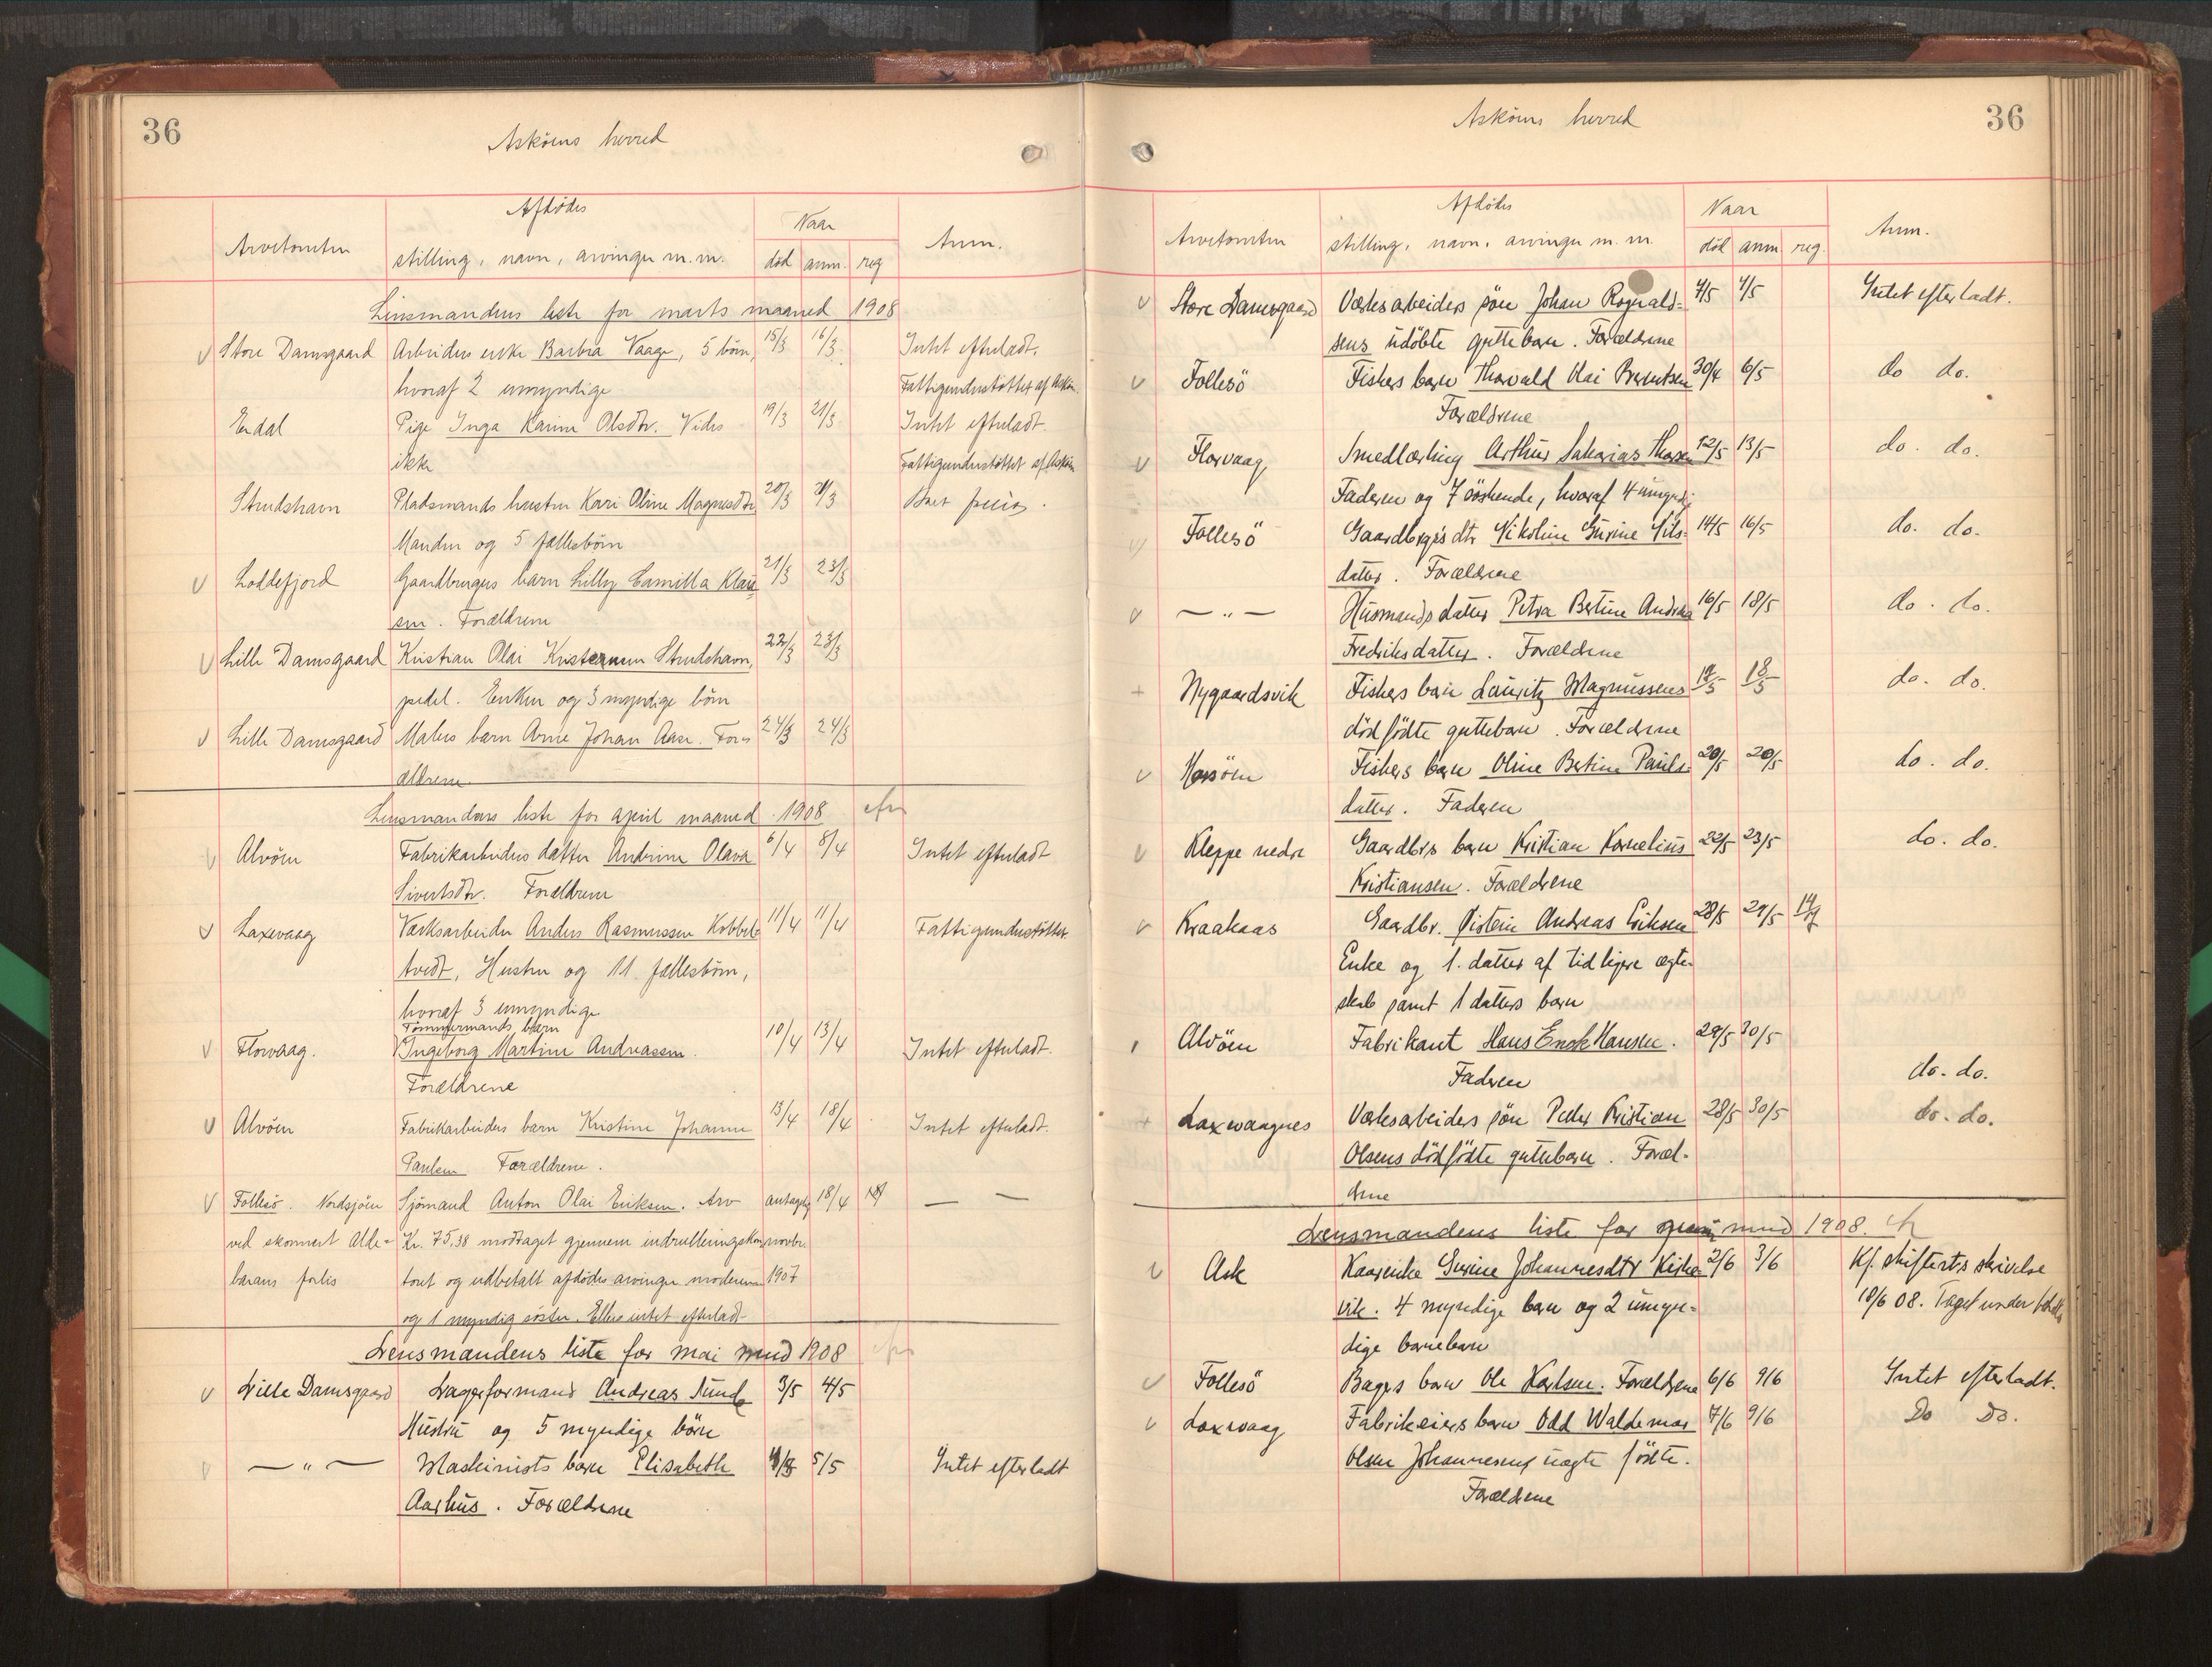 36
Askøens herred
Afdødes
Naar
Arvetomten stilling, navn, arvinger m. m. død anm. reg Anm.
Lensmandens liste for marts maaned 1908
Store Damsgaard Arbeiders enke Barbra Vaage, 5 børn, 15/3 16/3 Intet efterladt.
hvoraf 2 umyndige Fattigunderstøttet af Askøen
Erdal Pige Inga Karine Olsdtr. Vides 19/3 21/3 Intet efterladt.
ikke Fattigunderstøttet af Askøen
Strudshavn Pladsmands hustru Kari Oline Magnesdtr 20/3 21/3
Manden og 5 fællesbørn
Loddefjord Gaardbrugers barn Lilly Camilla Klau= 21/3 23/3
sen. Forældrene
Lille Damsgaard Kristian Olai Kristensen Strudshavn, 22/3 23/3
pedel. Enken og 3 myndige børn
Lille Damsgaard Malers barn Arne Johan Aase. For= 24/3 24/3
ældrene
Lensmandens liste for april maaned 1908
Alvøen Fabrikarbeiders datter Andrine Olava 6/4 8/4 Intet efterladt
Sivertsdtr. Forældrene
Laxevaag Værksarbeider Anders Rasmussen Kobbel= 11/4 11/4 Fattigunderstøttet
tvedt, Hustru og 11 fællesbørn,
hvoraf 3 umyndige
Tømmermands barn
Florvaag. Ingeborg Martine Andreassen. 10/4 13/4 Intet efterladt.
Forældrene
Alvøen Fabrikarbeiders barn Kristine Johanne 13/4 18/4 Intet efterladt.
Paulsen Forældrene.
Follesø. Nordsjøen Sjømand Anton Olai Eriksen. Arv antagelig 18/4 — —
ved skonnert Alde= Kr. 75,38 modtaget gjennem indrulleringskon= novbr.
barans forlis toret og udbetalt afdødes arvinger moderen 1907
og 1 myndig søster. Ellers intet efterladt
Lensmandens liste for mai mnd 1908
Lille Damsgaard Lagerformand Andreas Lunde 3/5 4/5
Hustru og 5 myndige børn
— " — Maskinists barn Elisabeth 4/5 5/5 Intet efterladt
Aarhus. Forældrene
36
Askøens herred
Afdødes Naar
Arvetomten stilling, navn, arvinger m. m. død anm. reg. Anm.
Store Damsgaard Værksarbeiders søn Johan Rognald= 4/5 4/5 Intet efterladt.
sens udøbte guttebarn. Forældrene
Follesø Fiskers barn Thorvald Olai Berntsen 30/4 6/5 do do.
Forældrene
Florvaag Smedlærling Arthur Sakarias Thorsen 12/5 13/5 do. do.
Faderen og 7 søskende, hvoraf 4 umyndig
Follesø Gaardbrgrs dtr Nikoline Gurine Nils= 14/5 16/5 do. do.
datter. Forældrene
— " — Husmands datter Petra Bertine Andrea 16/5 18/5 do. do.
Fredriksdatter. Forældrene
Nygaardsvik Fiskers barn Lauritz Magnussens 18/5 do. do.
død fødte guttebarn. Forældrene
Horsøen Fiskers barn Oline Bertine Pauls= 20/5 20/5 do. do.
datter. Faderen
Kleppe nedre Gaardbrs barn Kristian Kornelius 22/5 23/5 do. do.
Kristiansen. Forældrene
Kraakaas Gaardbr. Øistein Andreas Eriksen 28/5 29/5 14/7
Enke og 1. datter af tidligere ægte=
skab samt 1 datters barn
Alvøen Fabrikant Hans Enok Hansen. 29/5 30/5
Faderen do. do.
Laxevaagnes Værksarbeiders søn Peder Kristian 28/5 30/5 do. do.
Olsens dødfødte guttebarn. Foræl=
drene
Lensmandens liste for juni mnd 1908.
Ask Kaarenke Gurine Johannesdtr Kirke= 2/6 3/6 Kf. skifterts skrivelse
vik. 4 myndige barn og 2 umyn= 10/6 08. Taget under
dige barnebarn
Follesø Bagers barn Ole Karlsen. Forældrene 6/6 9/6 Intet efterladt.
Laxevaag Fabrikeiers barn Odd Waldemar 7/6 9/6 Do Do.
Olsen Johannesens uægte fødte.
Forældrene